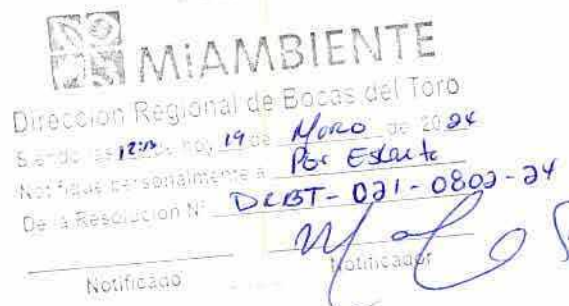 MiAMBIENTE
Dirección Regional de Bocas del Toro
Siendo las 12:13 de hoy 19 de Marzo de 2024
Notifique personalmente a Por Escrito
De la Resolución N° DRBT-021-0802-24
Notificado Notificador